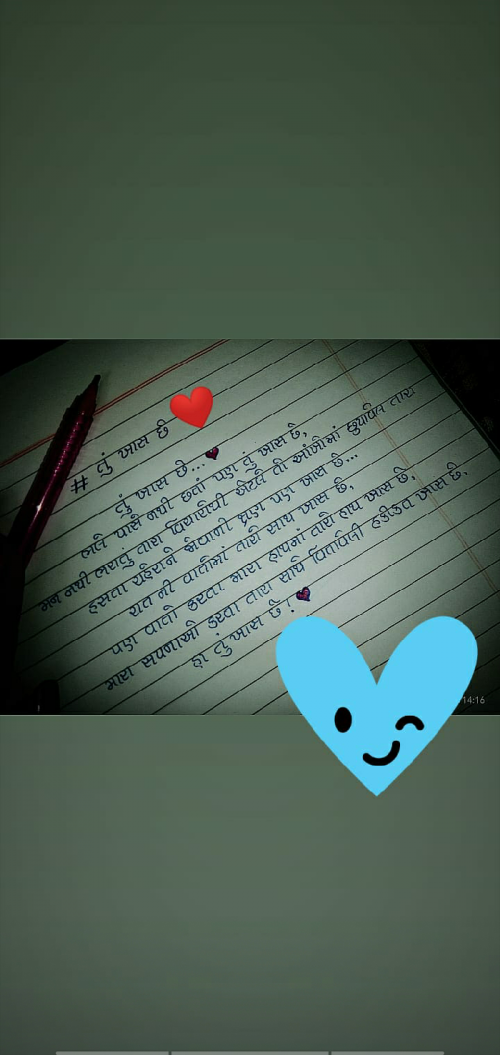 # તું ખાસ છે
તું ખાસ છે...
ભલે પાસે નથી છતાં પણ તું ખાસ છે,
મન નથી ભરાતું તારા વિચારોથી એટલે તો આંખોમાં છુપાવેલ તારા
હસતા ચહેરાને જોવાની ક્ષણ પણ ખાસ છે...
રાત ની વાતોમાં તારો સાથ ખાસ છે,
પણ વાતો કરતા મારા હાથમાં તારો હાથ ખાસ છે,
મારા સપનાઓ કરતા તારા સાથે વિતાવેલી હકીકત ખાસ છે.
હા તું ખાસ છે!
14:16